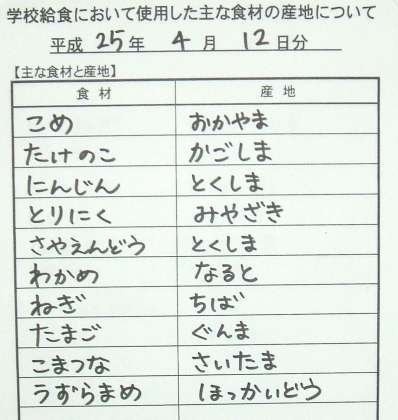 学校給食において使用した主な食材の産地について
平成 25 年 4 月 12 日分
【主な食材と産地】
食材 産地
こめ おかやま
たけのこ かごしま
にんじん とくしま
とりにく みやざき
さやえんどう とくしま
わかめ なると
ねぎ ちば
たまご ぐんま
こまつな さいたま
うずらまめ ほっかいどう